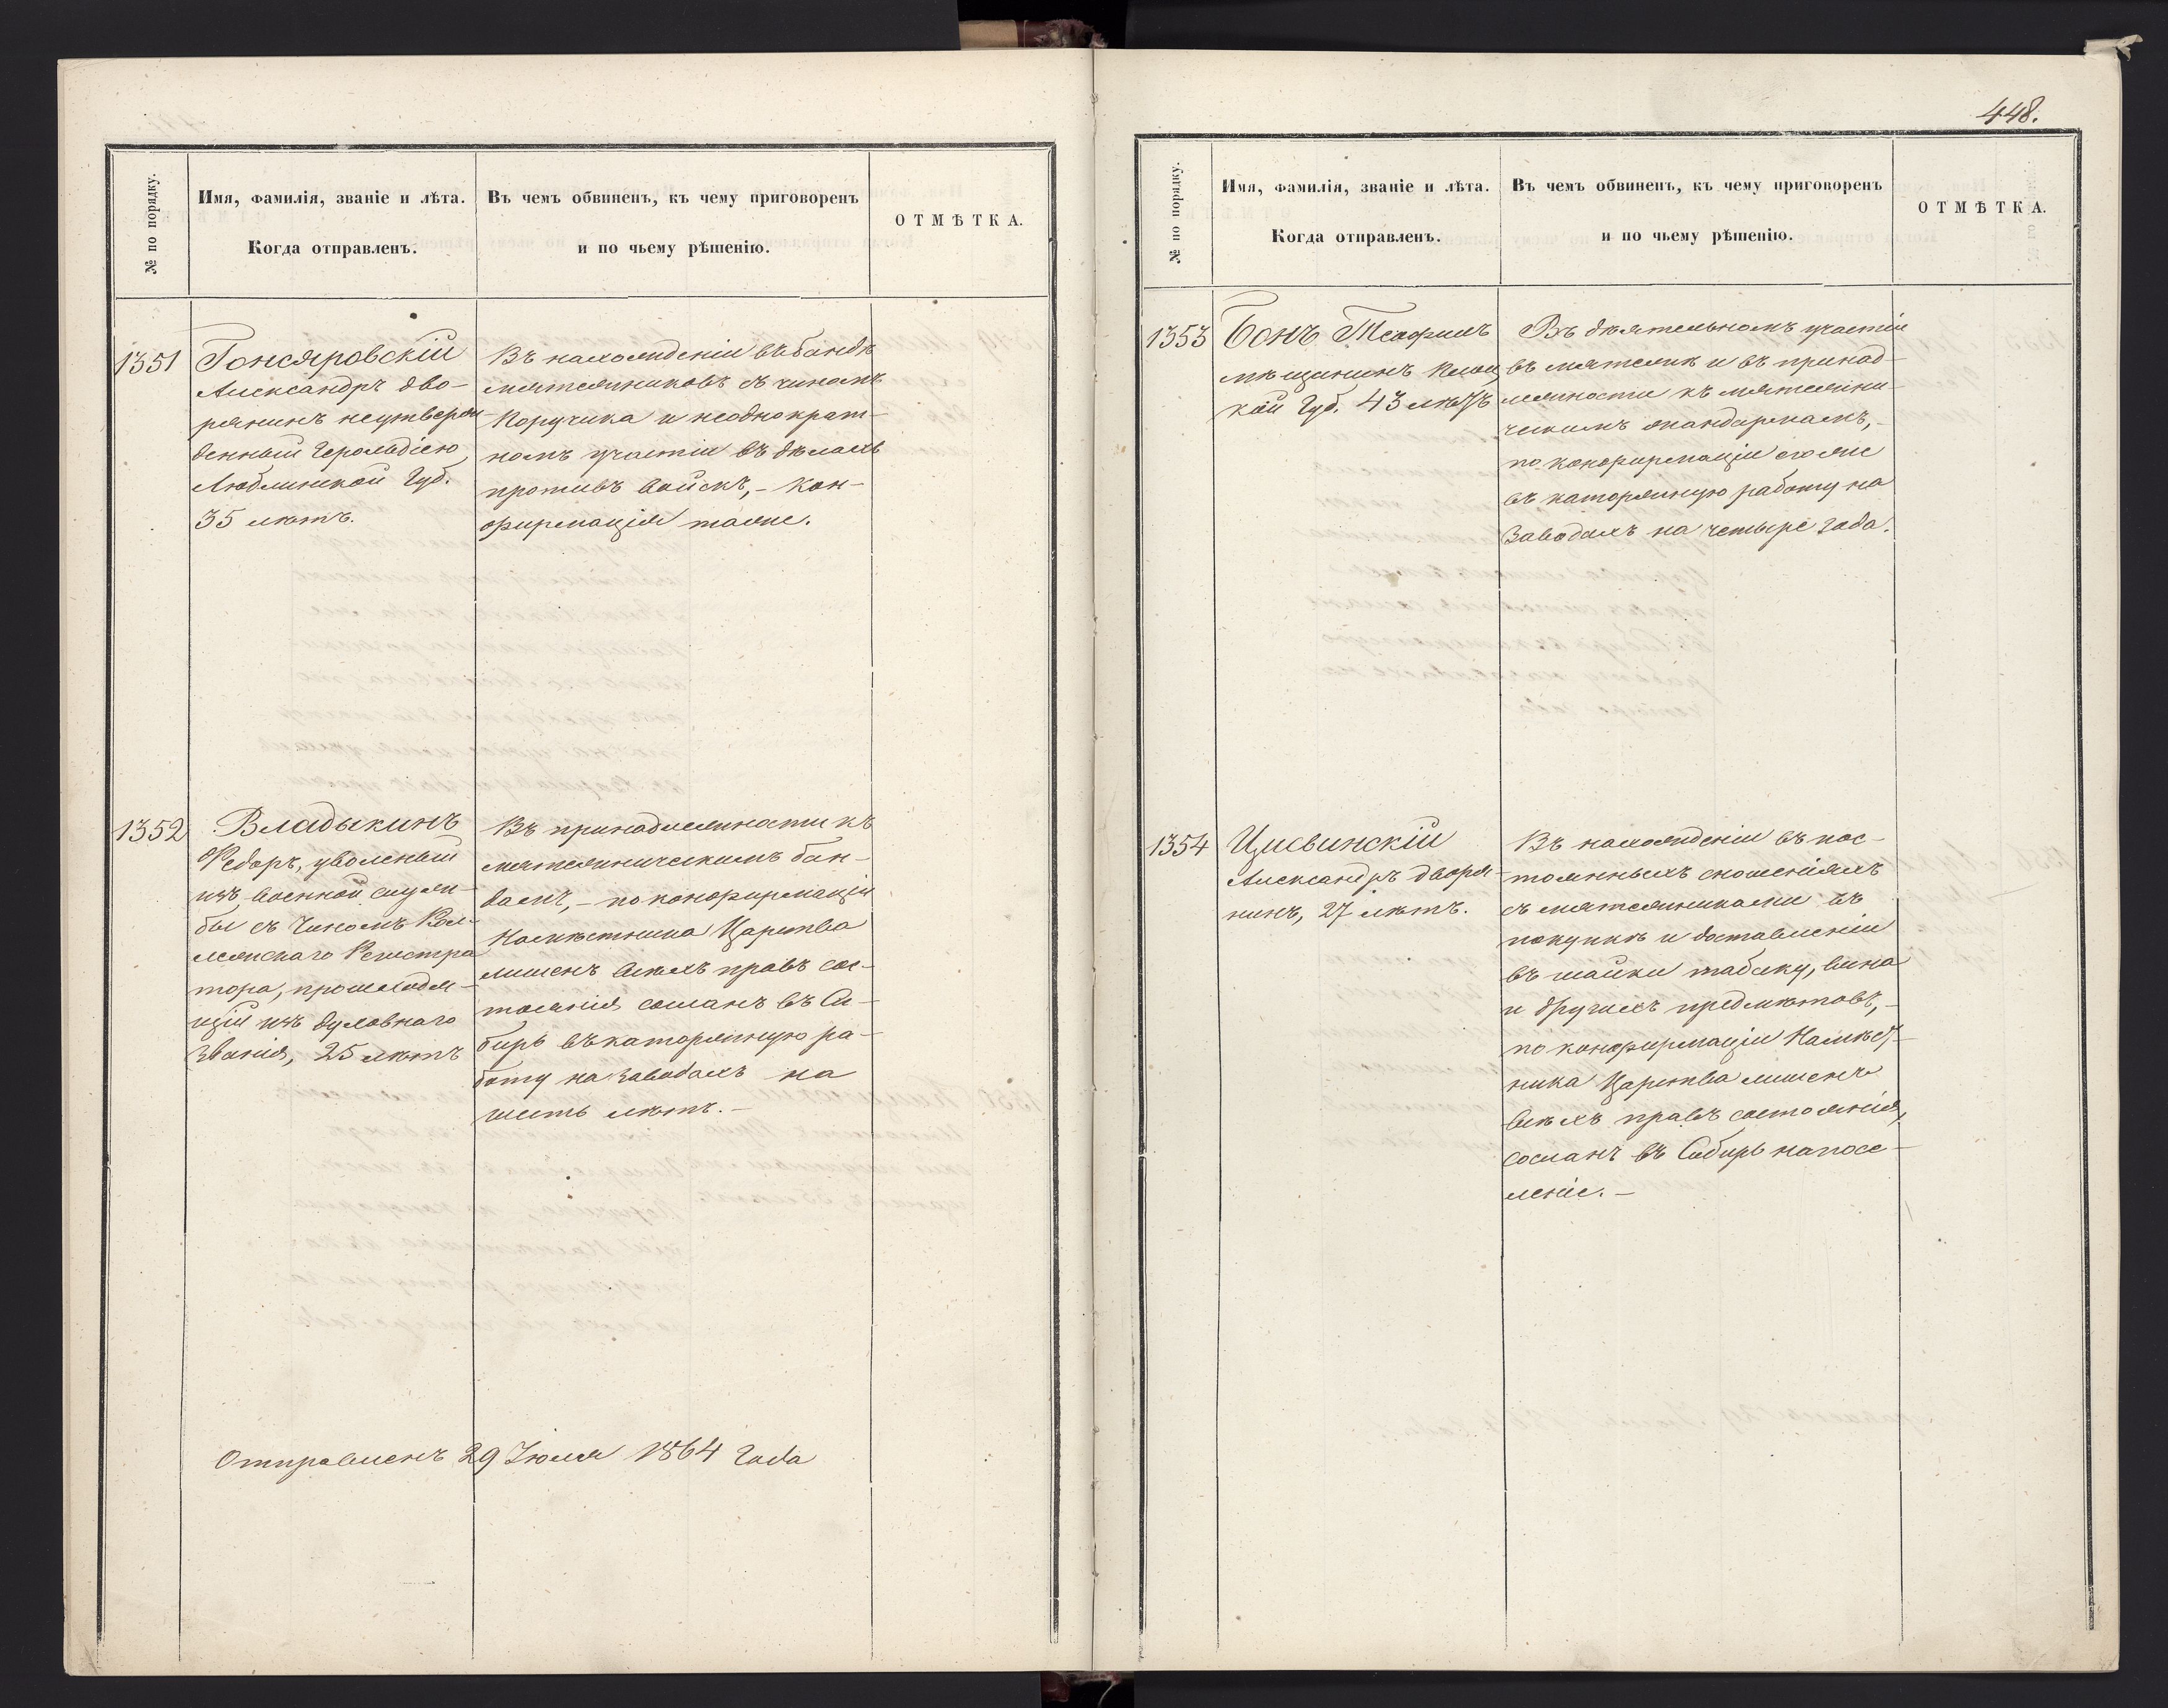 № по порядку.
Имя, фамилія, званіе и лѣта.
Когда отправленъ.
Въ чемъ обвиненъ, къ чему приговоренъ
и по чьему рѣшенію.
ОТМѢТКА.
1351
Гонсяровскій
Александръ дво-
рянинъ неутверж-
денный Герольдіею
Люблинской Губ.
35 лѣтъ.
Въ нахожденіи въ бандѣ
мятежниковъ съ чиномъ
Поручика и неоднократ-
номъ участіи въ дѣлахъ
противъ войскъ, - кон-
фирмація таже.
1352
Владыкинъ
Федоръ, уволеный
изъ военной служ-
бы съ Чиномъ Кол-
лежскаго Регистра
тора, происходя-
щій изъ духовнаго
Званія, 25 лѣтъ
Въ принадлежности къ
мятежническимъ бан-
дамъ, - по конфирмаціи
Намѣстника Царства
лишенъ всѣхъ правъ сос-
тоянія сосланъ въ Си-
бирь въ каторжную ра-
боту на Заводахъ на
шесть лѣтъ. -
Отправленъ 29 Іюля 1864 Года
448.
№ по порядку.
Имя, фамилія, званіе и лѣта.
Когда отправленъ.
Въ чемъ обвиненъ, къ чему приговоренъ
и по чьему рѣшенію.
ОТМѢТКА.
1353
Бонъ Теофилъ
мѣщанинъ
кой Губ. 43 лѣтъ
Въ дѣятельномъ участіи
въ мятежѣ и въ принад-
лежности къ мятежни-
ческимъ жандармамъ, -
по конфирмаціи
въ каторжную работу на
Заводахъ на четыре года.
1354
Цисвинскій
Александръ дворя-
нинъ, 27 лѣтъ.
Въ нахожденіи въ пос-
тоянныхъ сношеніяхъ
съ мятежниками въ
покупкѣ и доставленіи
въ шайки табаку, вина
и другихъ предмѣтовъ, -
по конфирмаціи Намѣст-
ника Царства лишенъ
всѣхъ правъ состоянія,
сосланъ въ Сибирь на посе-
леніе. -